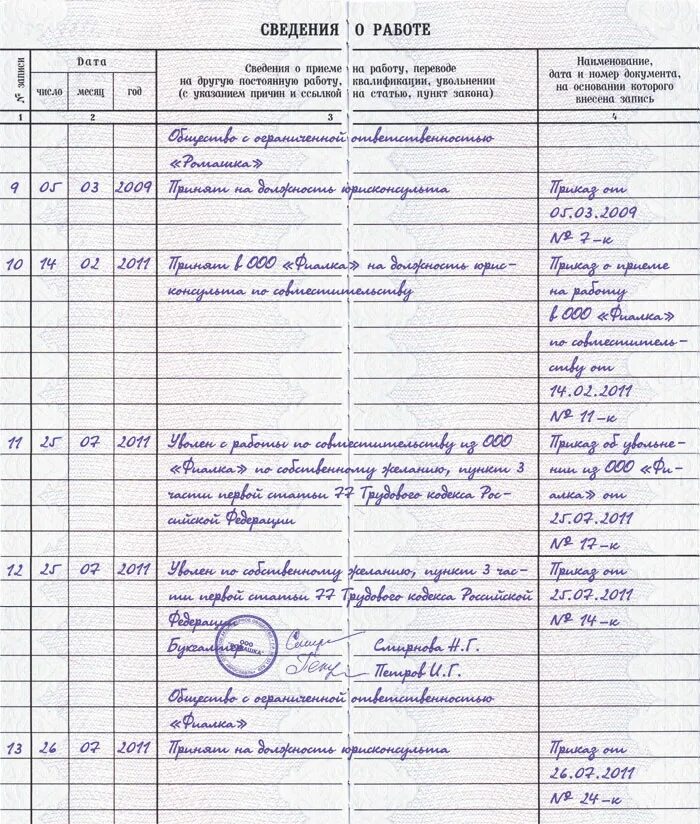 СВЕДЕНИЯ О РАБОТЕ
№ записи
Дата
число
месяц
год
Сведения о приеме на работу, переводе
на другую постоянную работу, квалификации, увольнении
(с указанием причин и ссылкой на статью, пункт закона)
Наименование,
дата и номер документа,
на основании которого
внесена запись
1 2 3 4
Общество с ограниченной ответственностью
«Ромашка»
9 05 03 2009 Принят на должность юрисконсульта Приказ от
05.03.2009
№ 7-к
10 14 02 2011 Принят в ООО «Фиалка» на должность юрис- Приказ о приеме
консульта по совместительству на работу
в ООО «Фиалка»
по совместитель-
ству от
14.02.2011
№ 11-к
11 25 07 2011 Уволен с работы по совместительству из ООО Приказ об увольне-
«Фиалка» по собственному желанию, пункт 3 нии из ООО «Фи-
части первой статьи 77 Трудового кодекса Рос- алка» от
сийской Федерации 25.07.2011
№ 17-к
12 25 07 2011 Уволен по собственному желанию, пункт 3 час- Приказ от
ти первой статьи 77 Трудового кодекса Российской 25.07.2011
Федерации № 14-к
Бухгалтер Смирнова Н.Г.
Петров И.Г.
ООО
"РОМАШКА"
Общество с ограниченной ответственностью
«Фиалка»
13 26 07 2011 Принят на должность юрисконсульта Приказ от
26.07.2011
№ 24-к